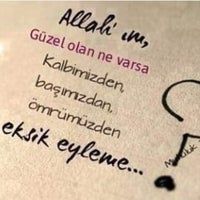 Allah'ım,
Güzel olan ne varsa
Kalbimizden,
başımızdan,
ömrümüzden
eksik eyleme...
?